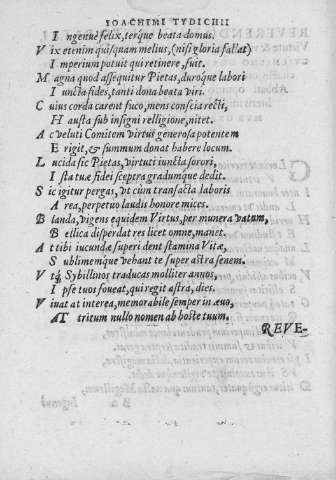 IOACHIMI TYDICHII
I ngenuè felix, terque beata domus.
V ix etenim quisquam melius, (nisi gloria fallat)
I mperium potuit qui retinere, fuit.
M agna quod assequitur Pietas, duroque labori
I uncta fides, tanti dona beata viri.
C uius corda carent fuco, mens conscia recti,
H austa sub insigni relligione, nitet.
A c veluti Comitem virtus generosa potentem
E rigit, & summum donat habere locum.
L ucida sic Pietas, virtuti iuncta sorori,
I sta tuae fidei sceptra gradumque dedit.
S ic igitur pergas, vt cùm transacta laboris
A rea, perpetuo laudis honore mices.
B landa, vigens equidem Virtus, per munera vatum,
B ellica disperdat res licet omne, manet.
A t tibi iucundae superi dent stamina Vitae,
S ublimemque vehant te super astra senem.
V tq́; Sybillinos traducas molliter annos,
I pse tuos foueat, qui regit astra, dies.
V iuat at interea, memorabile semper in aeuo,
AT tritum nullo nomen ab hoste tuum.
REVE-